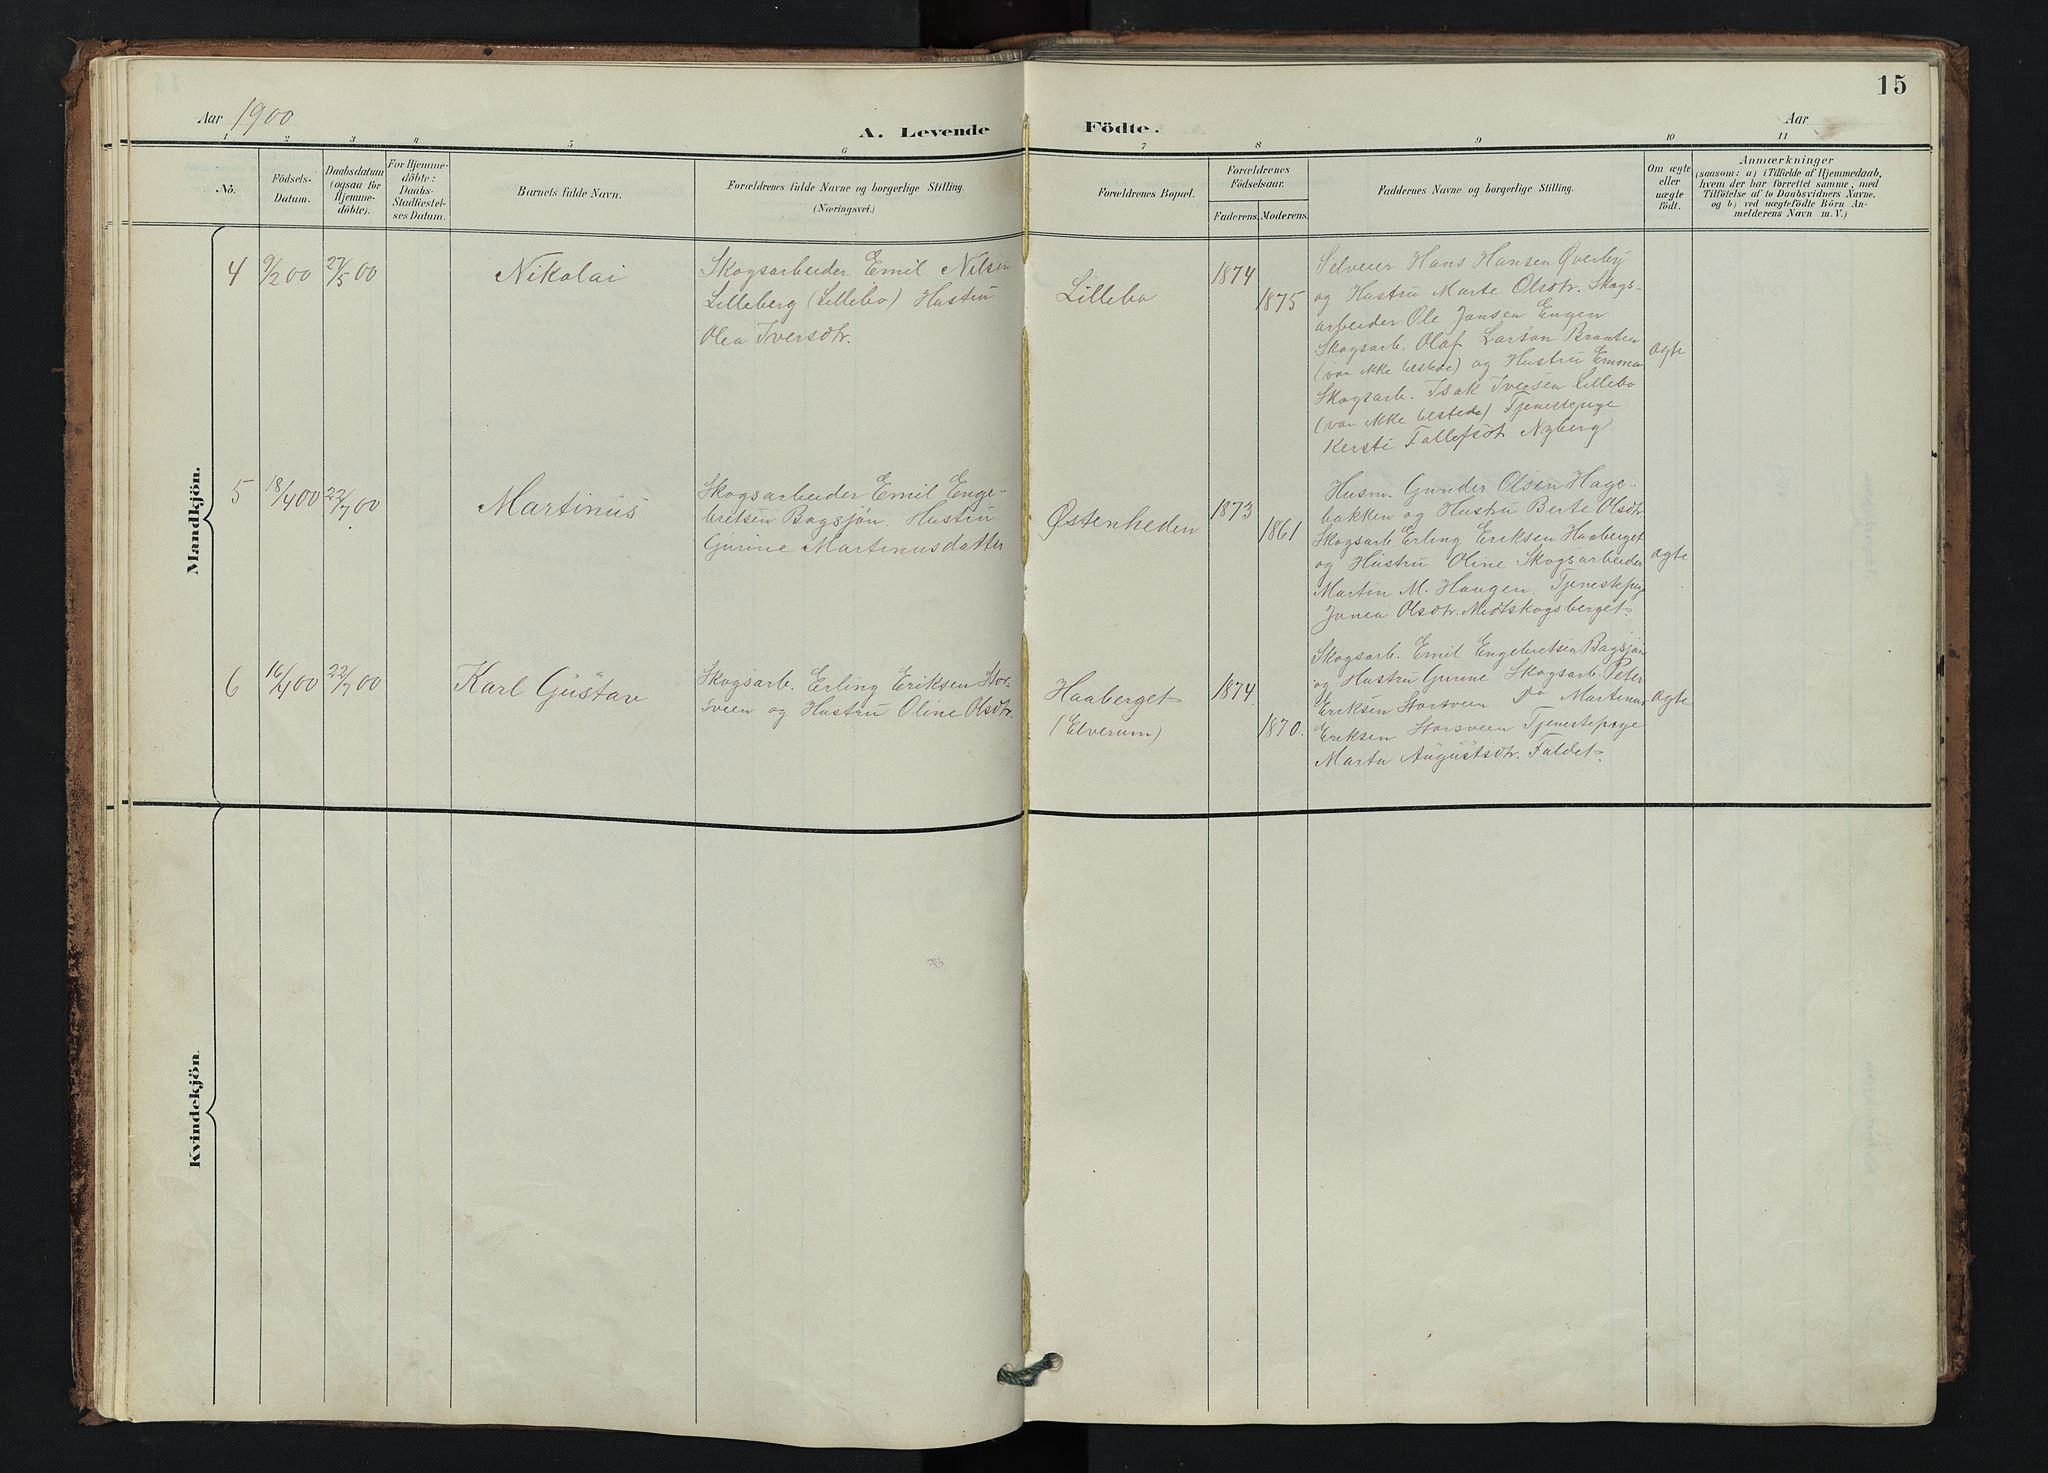 15
Aar 1900
A. Levende Födte.
Aar
1 2 3 4 5 6 7 8 9 10 11
No.
Födsels-
Datum.
Daabsdatum
(ogsaa for
Hjemme-
döbte).
For Hjemme-
döbte:
Daabs-
Stadfæstel-
ses Datum.
Barnets fulde Navn.
Forældrenes fulde Navne og borgerlige Stilling.
(Næringsvei.)
Forældrenes Bopæl.
Forældrenes
Födselsaar.
Faderens. Moderens.
Faddernes Navne og borgerlige Stilling.
Om ægte
eller
uægte
födt.
Anmærkninger
(saasom: a) i Tilfælde af Hjemmedaab,
hvem der har forrettet samme, med
Tilföielse af to Daabsvidners Navne.
og b) ved uægtefödte Börn An-
melderens Navn m. V.)
Mandkjön.
4 9/2 00 27/5 00
Nikolai
Skogsarbeider Emil Nilsen
Lilleberg (Lillebo) Hustru
Olea Iversdtr.
Lillebo
1874
1875
Selveier Hans Hansen Øverby
og Hustru Marte Olsdtr. Skogs-
arbeider Ole Jansen Engen
Skogsarb. Olaf Larson Braaten
(var ikke tilstede) og Hustru Emma
Skogsarb. Isak Iversen Lillebo
(var ikke tilstede) Tjenestepige
Kersti Tollefsdtr Nyberg
ægte
5 18/4 00 22/7 00
Martinus
Skogsarbeider Emil Enge-
bretsen Bagsjön. Hustru
Gurine Martinusdatter
Østenheden
1873
1861
Husm. Gunder Olsen Hage-
bakken og Hustru Berte Olsdtr.
Skogsarb Erling Eriksen Haaberget
og Hustru Oline Skogsarbeider
Martin M. Haugen. Tjenestepige
Jonea Olsdtr. Midtskogsberget.
ægte
6 16/4 00 22/7 00
Karl Gustav
Skogsarb. Erling Eriksen Stor-
sveen og Hustru Oline Olsdtr.
Haaberget
(Elverum)
1874
1870.
Skogsarb. Emil Engebretsen Bagsjön
og Hustru Gurine Skogsarb. Peter
Eriksen Storsveen Do Martinus
Eriksen Storsveen Tjenestepige
Marta Augustsdtr. Faldet.
ægte
Kvindekjön.